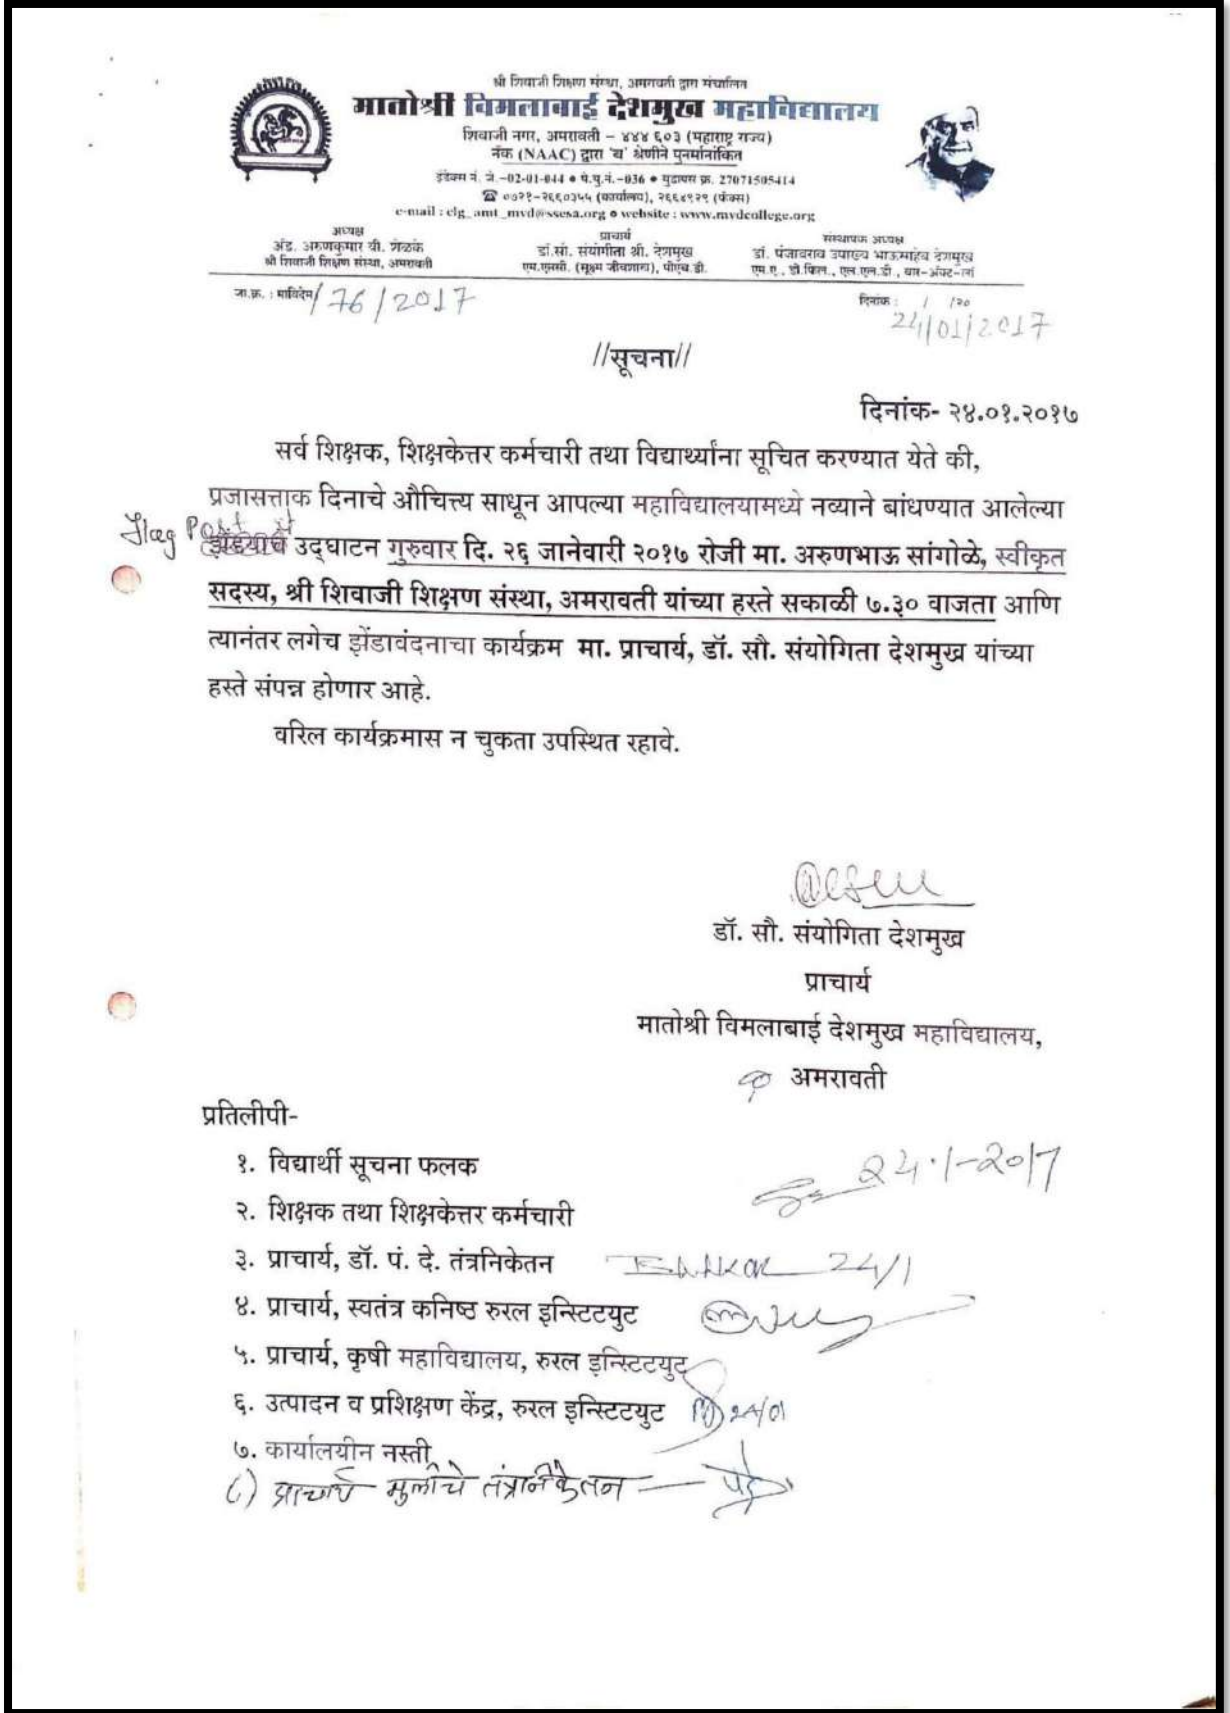 श्री शिवाजी शिक्षण संस्था, अमरावती द्वारा संचालित
मातोश्री विमलाबाई देशमुख महाविद्यालय
शिवाजी नगर, अमरावती – ४४४ ६०३ (महाराष्ट्र राज्य)
नॅक (NAAC) द्वारा 'ब' श्रेणीने पुनर्मानांकित
इंडेक्स नं. जे.-02-01-044 ● पे.यु.नं.-036 ● युडायस क्र. 27071505414
☎ ०७२१-२६६०३५५ (कार्यालय), २६६४९२९ (फॅक्स)
e-mail : clg_amt_mvd@ssesa.org ● website : www.mvdcollege.org
अध्यक्ष प्राचार्य संस्थापक अध्यक्ष
अॅड. अरुणकुमार वी. शेळके डॉ.सौ. संयोगीता श्री. देशमुख डॉ. पंजाबराव उपाख्य भाऊसाहेब देशमुख
श्री शिवाजी शिक्षण संस्था, अमरावती एम.एससी. (सूक्ष्म जीवशास्त्र), पीएच.डी. एम.ए., डी.फिल., एल.एल.डी., बार-अॅट-लॉ
जा.क्र. : माविदेम/76/2017 दिनांक : / /२०
24/01/2017
//सूचना//
दिनांक- २४.०१.२०१७
सर्व शिक्षक, शिक्षकेत्तर कर्मचारी तथा विद्यार्थ्यांना सूचित करण्यात येते की,
प्रजासत्ताक दिनाचे औचित्त्य साधून आपल्या महाविद्यालयामध्ये नव्याने बांधण्यात आलेल्या
Flag Post चे उद्घाटन गुरुवार दि. २६ जानेवारी २०१७ रोजी मा. अरुणभाऊ सांगोळे, स्वीकृत
सदस्य, श्री शिवाजी शिक्षण संस्था, अमरावती यांच्या हस्ते सकाळी ७.३० वाजता आणि
त्यानंतर लगेच झेंडावंदनाचा कार्यक्रम मा. प्राचार्य, डॉ. सौ. संयोगिता देशमुख यांच्या
हस्ते संपन्न होणार आहे.
वरिल कार्यक्रमास न चुकता उपस्थित रहावे.
डॉ. सौ. संयोगिता देशमुख
प्राचार्य
मातोश्री विमलाबाई देशमुख महाविद्यालय,
अमरावती
प्रतिलीपी-
१. विद्यार्थी सूचना फलक
24-1-2017
२. शिक्षक तथा शिक्षकेत्तर कर्मचारी
३. प्राचार्य, डॉ. पं. दे. तंत्रनिकेतन 24/1
४. प्राचार्य, स्वतंत्र कनिष्ठ रुरल इन्स्टिटयुट
५. प्राचार्य, कृषी महाविद्यालय, रुरल इन्स्टिटयुट
६. उत्पादन व प्रशिक्षण केंद्र, रुरल इन्स्टिटयुट 24/01
७. कार्यालयीन नस्ती
८) प्राचार्य मुलींचे तंत्रनिकेतन —